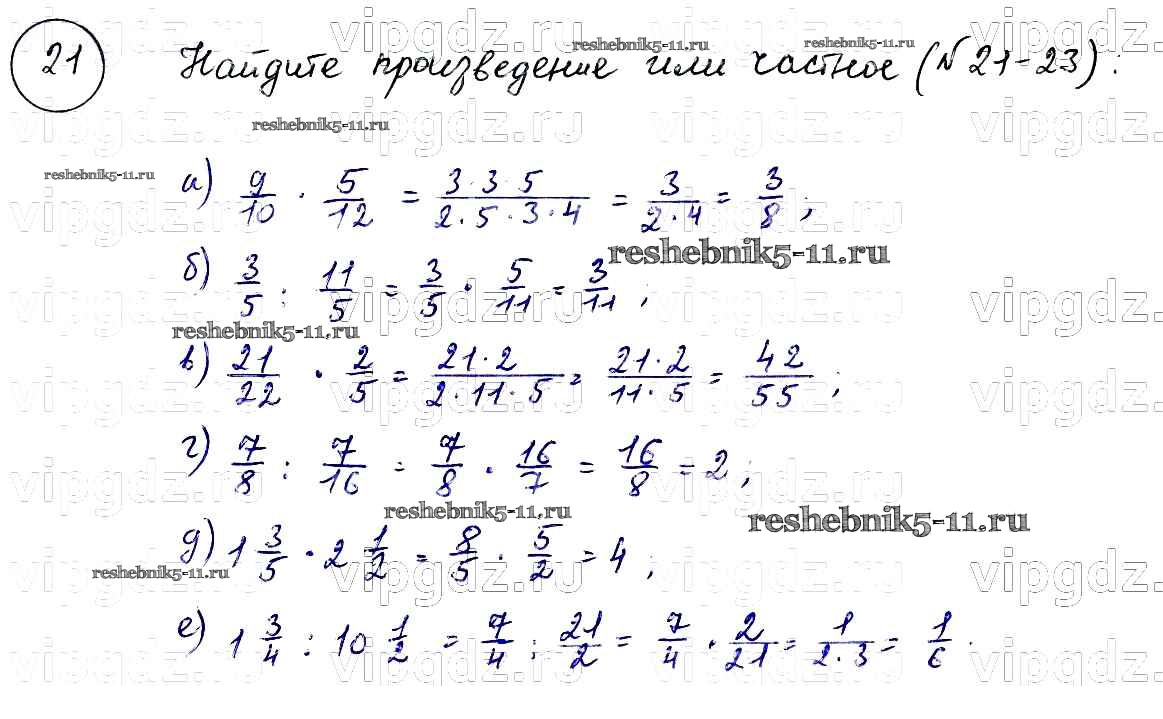 21 Найдите произведение или частное (№ 21-23):
а) 9/10 · 5/12 = 3·3·5/2·5·3·4 = 3/2·4 = 3/8;
б) 3/5 : 11/5 = 3/5 · 5/11 = 3/11;
в) 21/22 · 2/5 = 21·2/2·11·5 = 21·2/11·5 = 42/55;
г) 7/8 : 7/16 = 7/8 · 16/7 = 16/8 = 2;
д) 1 3/5 · 2 1/2 = 8/5 · 5/2 = 4;
е) 1 3/4 : 10 1/2 = 7/4 : 21/2 = 7/4 · 2/21 = 1/2·3 = 1/6.
vipgdz.ru
reshebnik5-11.ru